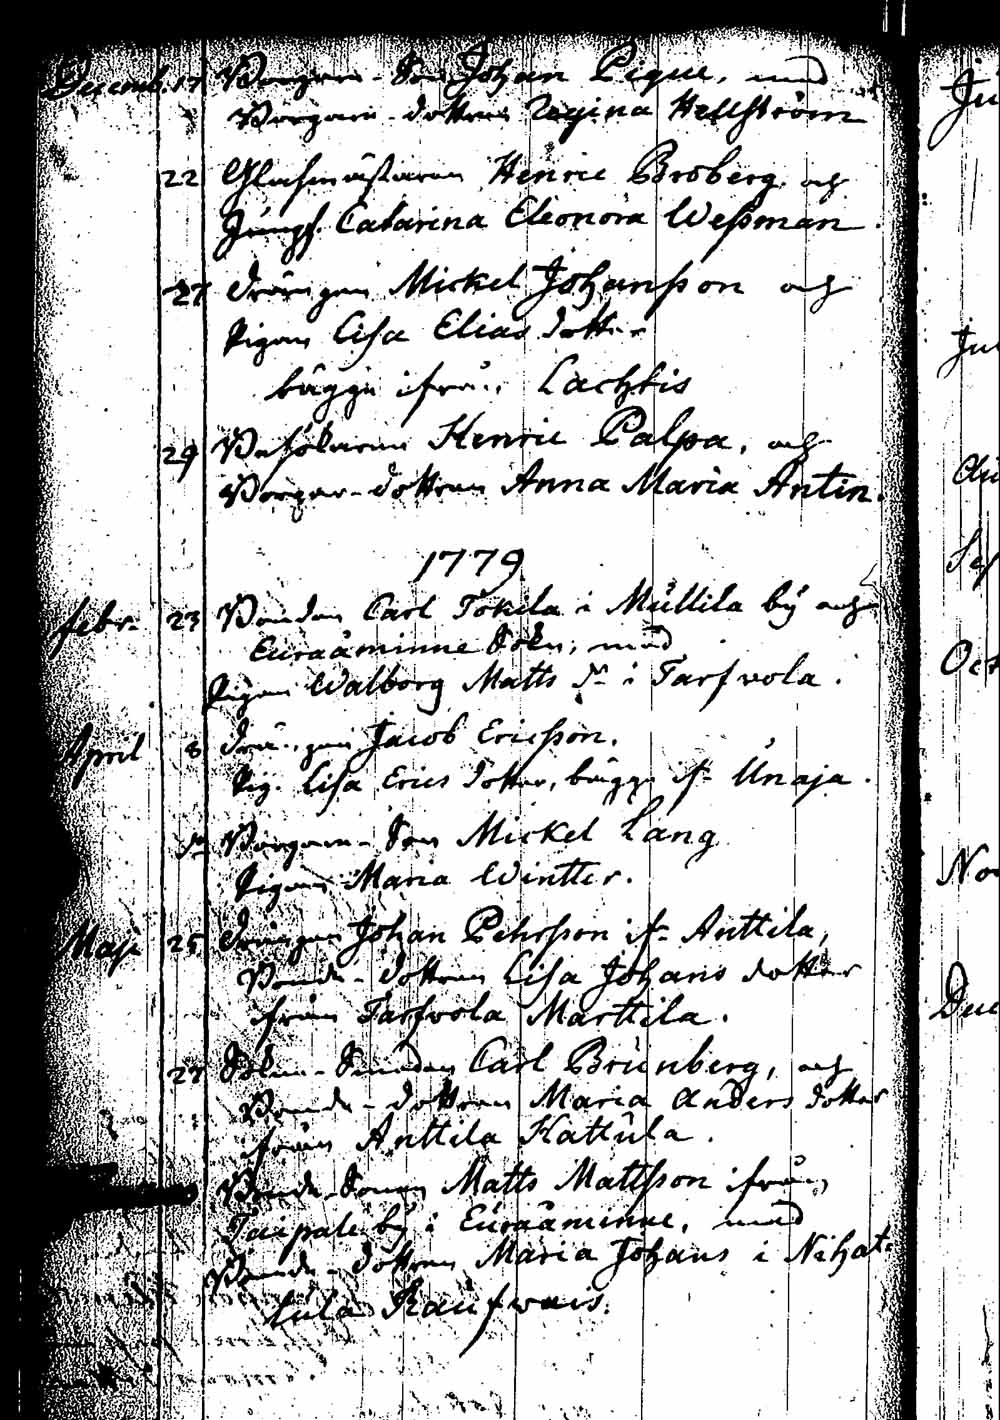 Decemb. 17 Borgare-Son Johan Pique, med
Borgare-dottren Regina Hellström
22 Glasmästaren Henric Broberg, och
Jungf. Catarina Eleonora Weßman.
27 Drängen Mickel Johanßon och
Pigan Lisa Elias dotter
bägge ifrån Lachtis
29 Henric Palpa, och
Borgar-dottren Anna Maria Antin.
1779
Febr. 23 Bonden Carl Tokila i Mullila by och
Euraåminne Sokn, med
Pigan Walborg Matts Dr i Tarfvola.
April 8 Drängen Jacob Ericßon.
Pig. Lisa Erics dotter, bägge ifr Unaja.
Borgare-Son Mickel Lang
Pigan Maria Winter.
Maji 25 Drängen Johan Pehrßon ifr Anttila,
Bonde-dottren Lisa Johans dotter
från Tarfvola Marttila.
27 Carl Brunberg, och
Bonde-dottren Maria Anders dotter
från Anttila Kattula.
Bonde-Sonen Matts Mattßon ifrån
Taipale by i Euraåminne, med
Bonde-dottren Maria Johans i Nihat-
tula